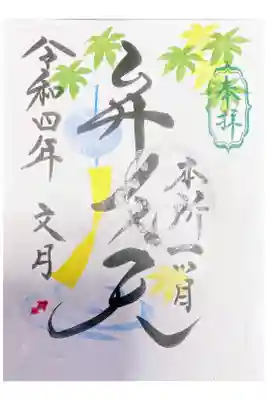 奉拝
本所一ツ目
弁才天
令和四年 文月